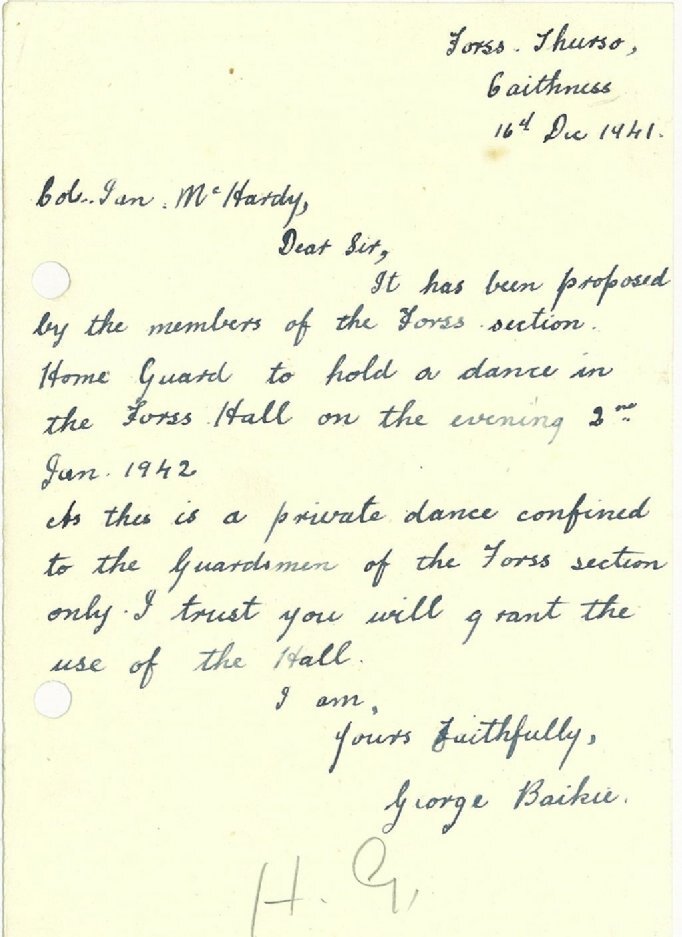 Forss. Thurso,
Caithness
16th Dec 1941.
Col. Ian. McHardy,
Dear Sir,
It has been proposed
by the members of the Forss section.
Home Guard to hold a dance in
the Forss Hall on the evening 2nd
Jan. 1942
As this is a private dance confined
to the Guardsmen of the Forss section
only. I trust you will grant the
use of the Hall.
I am,
Yours Faithfully,
George Baikie.
H. G.